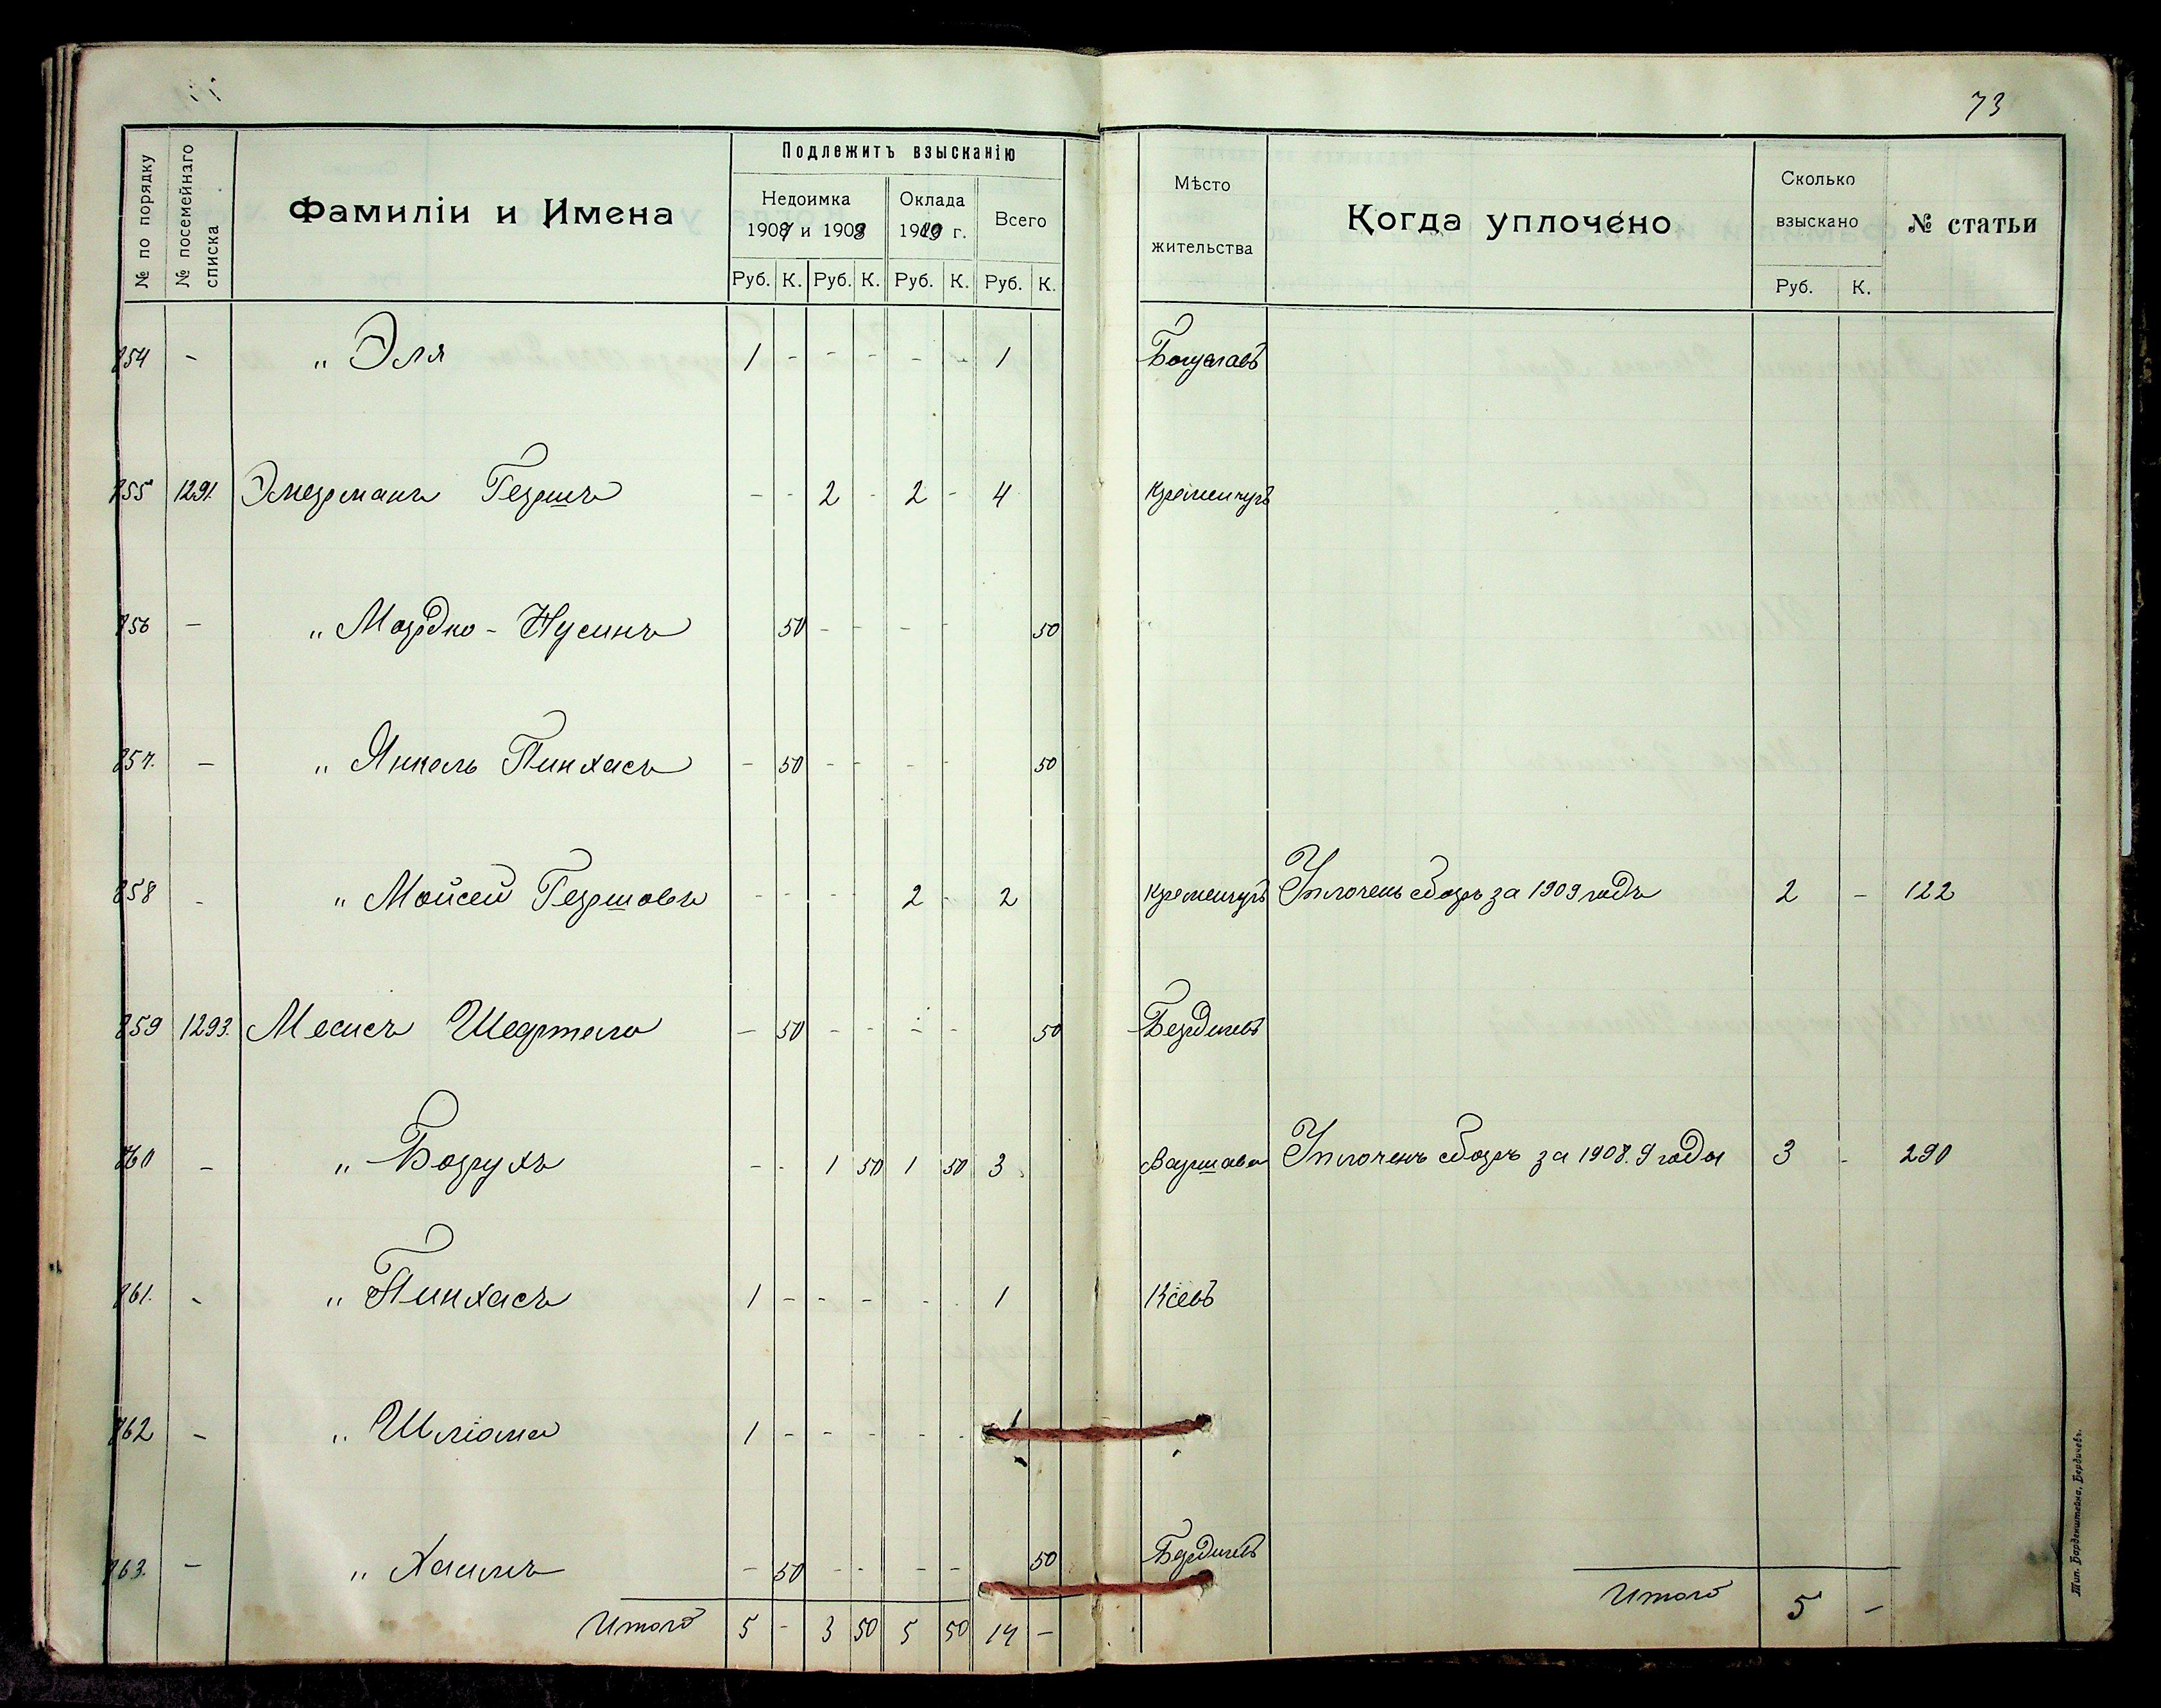 73
№ по порядку
№ посемейнаго списка
Фамиліи и Имена
Подлежитъ взысканію
Недоимка
1907 и 1908
Оклада
1909 г.
Всего
Руб. К. Руб. К. Руб. К. Руб. К.
Мѣсто
жительства
Когда уплочено
Сколько
взыскано
Руб. К.
№ статьи
854 - „ Эля 1 - - - - - 1
855 1291. Гершъ - - 2 - 2 - 4 Кременчугъ
856 - „ Мордко-Нусинъ 50 - - - - 50
857. - „ Янкель Пинхасъ - 50 - - - - 50
858 - „ Мойсей Гершовъ - - - - 2 - 2 Кременчугъ Уплоченъ сборъ за 1909 годъ 2 - 122
859 1293. Месисъ - 50 - - - - 50 Бердичевъ
860 - „ Борухъ - - 1 50 1 50 3 Варшава Уплоченъ сборъ за 1908.9 годы 3 - 290
861. - „ Пинхасъ 1 - - - - - 1 Кіевъ
862 - „ Шліома 1 - - - - - 1
863. - „ Хаимъ - 50 - - - - 50 Бердичевъ
Итого 5 - 3 50 5 50 14 -
Итого 5 -
Тип. Барденштейна, Бердичевъ.